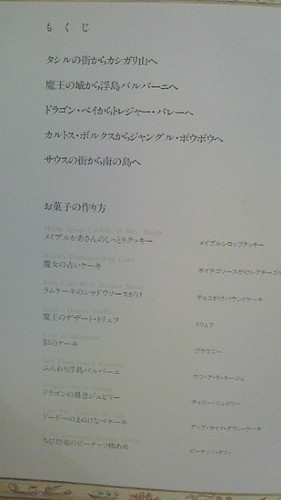 もくじ
タシルの街からカシガリ山へ
魔王の城から浮島バルバーニへ
ドラゴン・ベイからトレジャー・バレーへ
カルトス・ボルクスからジャングル・ボウボウへ
サウスの街から南の島へ
お菓子の作り方
メイプルかあさんのしっとりクッキー メイプルシロップクッキー
魔女の占いケーキ
ラムケーキのシャドウソースがけ チョコがけパウンドケーキ
魔王のデザート・トリュフ トリュフ
影のケーキ ブラウニー
ふんわり浮島バルバーニ ウフ・ア・ラ・ネージュ
ドラゴンの鼻息ジュビリー チェリー・ジュビリー
ドードーのまぬけなべケーキ アップ・サイド・ダウン・ケーキ
ちび恐竜のピーナッツ棒あめ